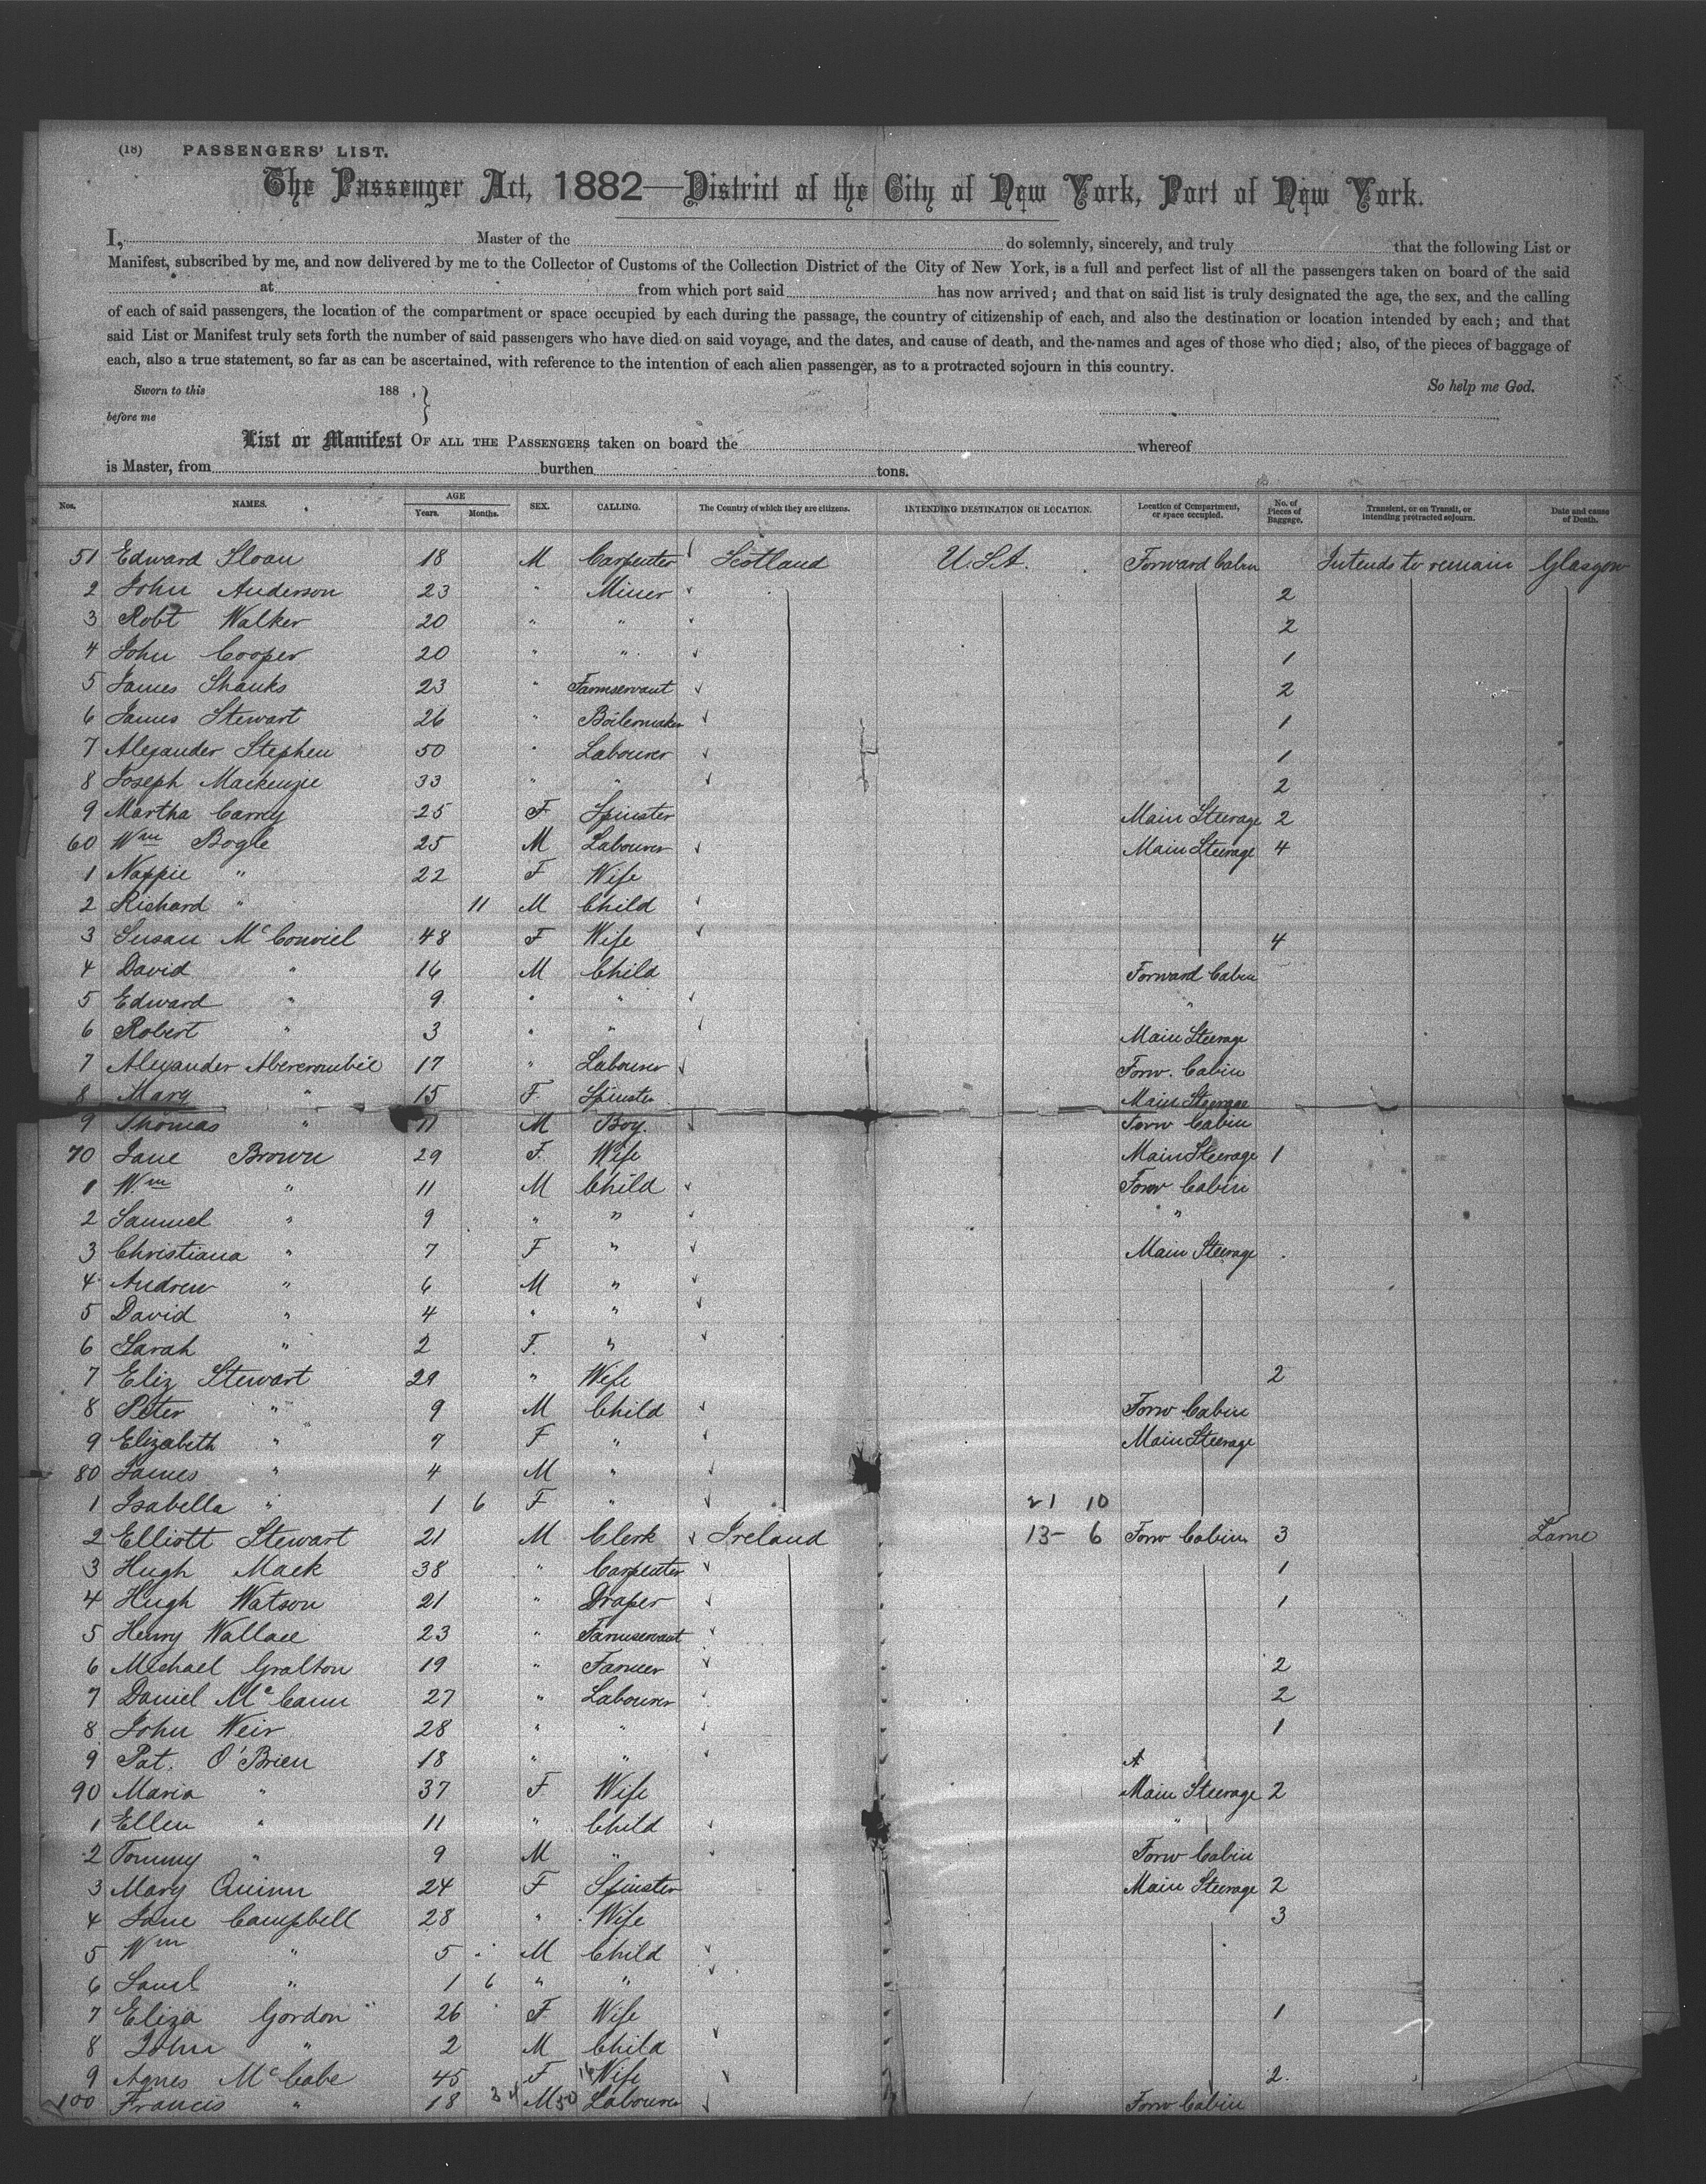 (18) PASSENGERS' LIST.
The Passenger Act, 1882—District of the City of New York, Port of New York.
I, Master of the do solemnly, sincerely, and truly that the following List or
Manifest, subscribed by me, and now delivered by me to the Collector of Customs of the Collection District of the City of New York, is a full and perfect list of all the passengers taken on board of the said
at from which port said has now arrived; and that on said list is truly designated the age, the sex, and the calling
of each of said passengers, the location of the compartment or space occupied by each during the passage, the country of citizenship of each, and also the destination or location intended by each; and that
said List or Manifest truly sets forth the number of said passengers who have died on said voyage, and the dates, and cause of death, and the names and ages of those who died; also, of the pieces of baggage of
each, also a true statement, so far as can be ascertained, with reference to the intention of each alien passenger, as to a protracted sojourn in this country.
Sworn to this 188 . } So help me God.
before me
List or Manifest OF ALL THE PASSENGERS taken on board the whereof
is Master, from burthen tons.
Nos. NAMES. AGE Years. Months. SEX. CALLING. The Country of which they are citizens. INTENDING DESTINATION OR LOCATION. Location of Compartment, or space occupied. No. of Pieces of Baggage. Transient, or on Transit, or intending protracted sojourn. Date and cause of Death.
51 Edward Sloan 18 M Carpenter Scotland U.S.A. Forward Cabin Intends to remain Glasgow
2 John Anderson 23 " Miner 2
3 Robt Walker 20 " " 2
4 John Cooper 20 " " 1
5 James Shanks 23 " Farmservant 2
6 James Stewart 26 " Boilermaker 1
7 Alexander Stephen 50 " Labourer 1
8 Joseph Mackenzie 33 " " 2
9 Martha 25 F Spinster Main Steerage 2
60 Wm Bogle 25 M Labourer Main Steerage 4
1 " 22 F Wife
2 Richard " 11 M Child
3 Susan 48 F Wife 4
4 David " 16 M Child Forward Cabin
5 Edward " 9 " " "
6 Robert " 3 " " Main Steerage
7 Alexander Abercrombie 17 " Labourer Forw. Cabin
8 Mary " 15 F Spinster Main Steerage
9 Thomas " 11 M Boy. Forw Cabin
70 Jane Brown 29 F Wife Main Steerage 1
1 Wm " 11 M Child Forw Cabin
2 Samuel " 9 " " "
3 Christiana " 7 F " Main Steerage
4 Andrew " 6 M "
5 David " 4 " "
6 Sarah " 2 F. "
7 Eliz Stewart 29 " Wife 2
8 Peter " 9 M Child Forw Cabin
9 Elizabeth " 7 F " Main Steerage
80 James " 4 M "
1 Isabella " 1 6 F " 21 10
2 Elliott Stewart 21 M Clerk Ireland 13 - 6 Forw Cabin 3 Larne
3 Hugh Mack 38 " Carpenter 1
4 Hugh Watson 21 " Draper 1
5 Henry Wallace 23 " Farmservant
6 Michael Gralton 19 " Farmer 2
7 Daniel McCann 27 " Labourer 2
8 John Weir 28 " " 1
9 Pat. O'Brien 18 " "
90 Maria " 37 F Wife Main Steerage 2
1 Ellen " 11 " Child "
2 Tommy " 9 M " Forw Cabin
3 Mary Quinn 24 F Spinster Main Steerage 2
4 Jane Campbell 28 " Wife 3
5 Wm " 5 M Child
6 Saml " 1 6 " "
7 Eliza Gordon 26 F Wife 1
8 John " 2 M Child
9 Agnes McCabe 45 F Wife 2
100 Francis " 18 M Labourer Forw Cabin